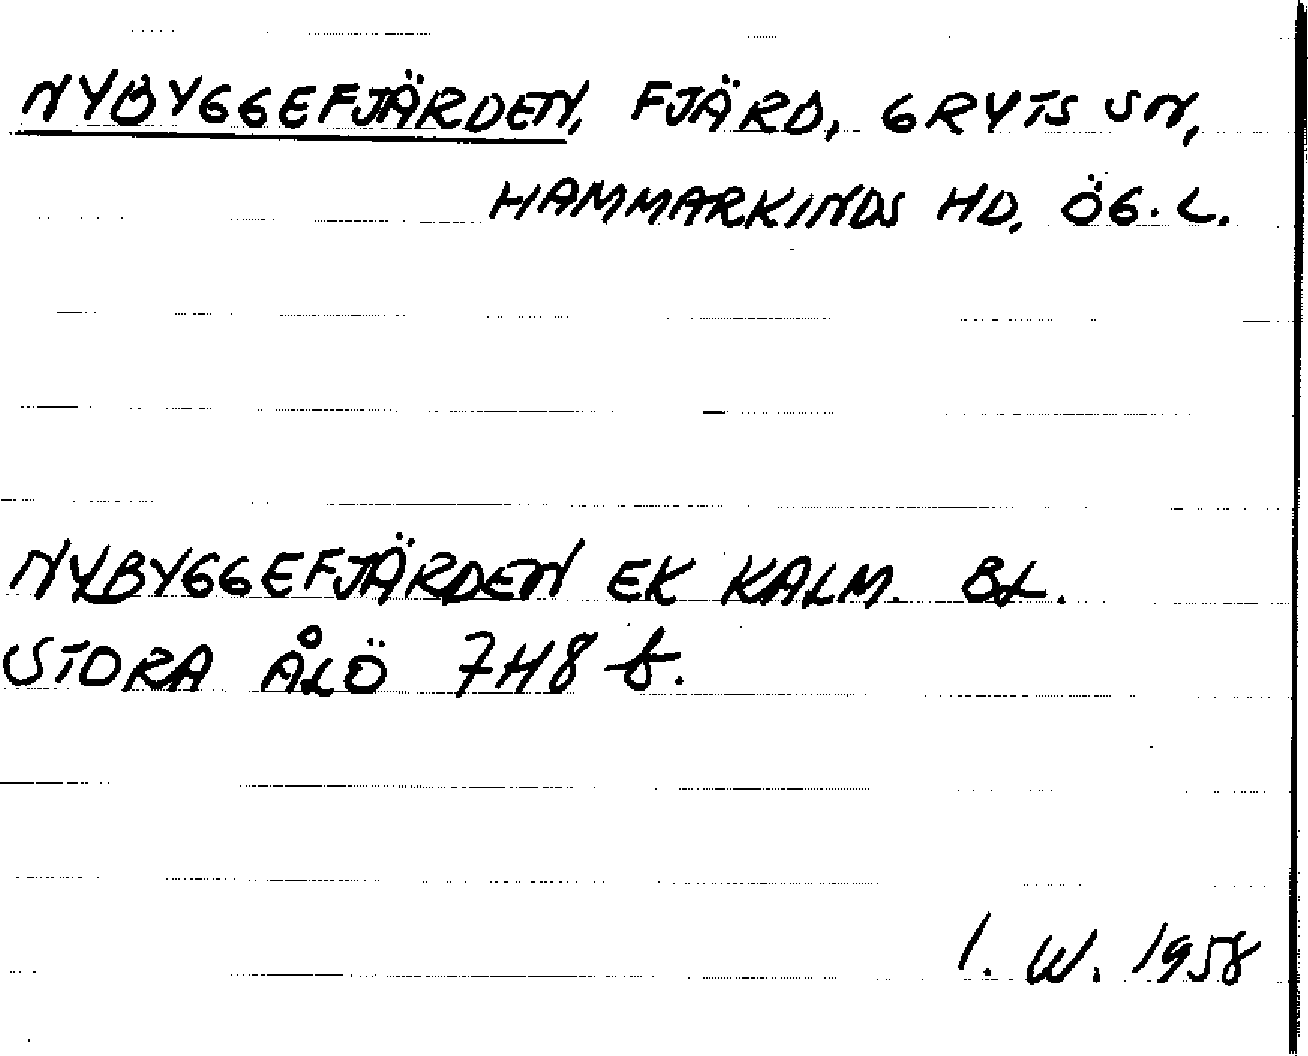 NYBYGGEFJÄRDEN, FJÄRD, GRYTS SN,
HAMMARKINDS HD. ÖG. L.
NYBYGGEFJÄRDEN EK KALM. BL.
STORA ÅLÖ 7H8 b.
I. W. 1958